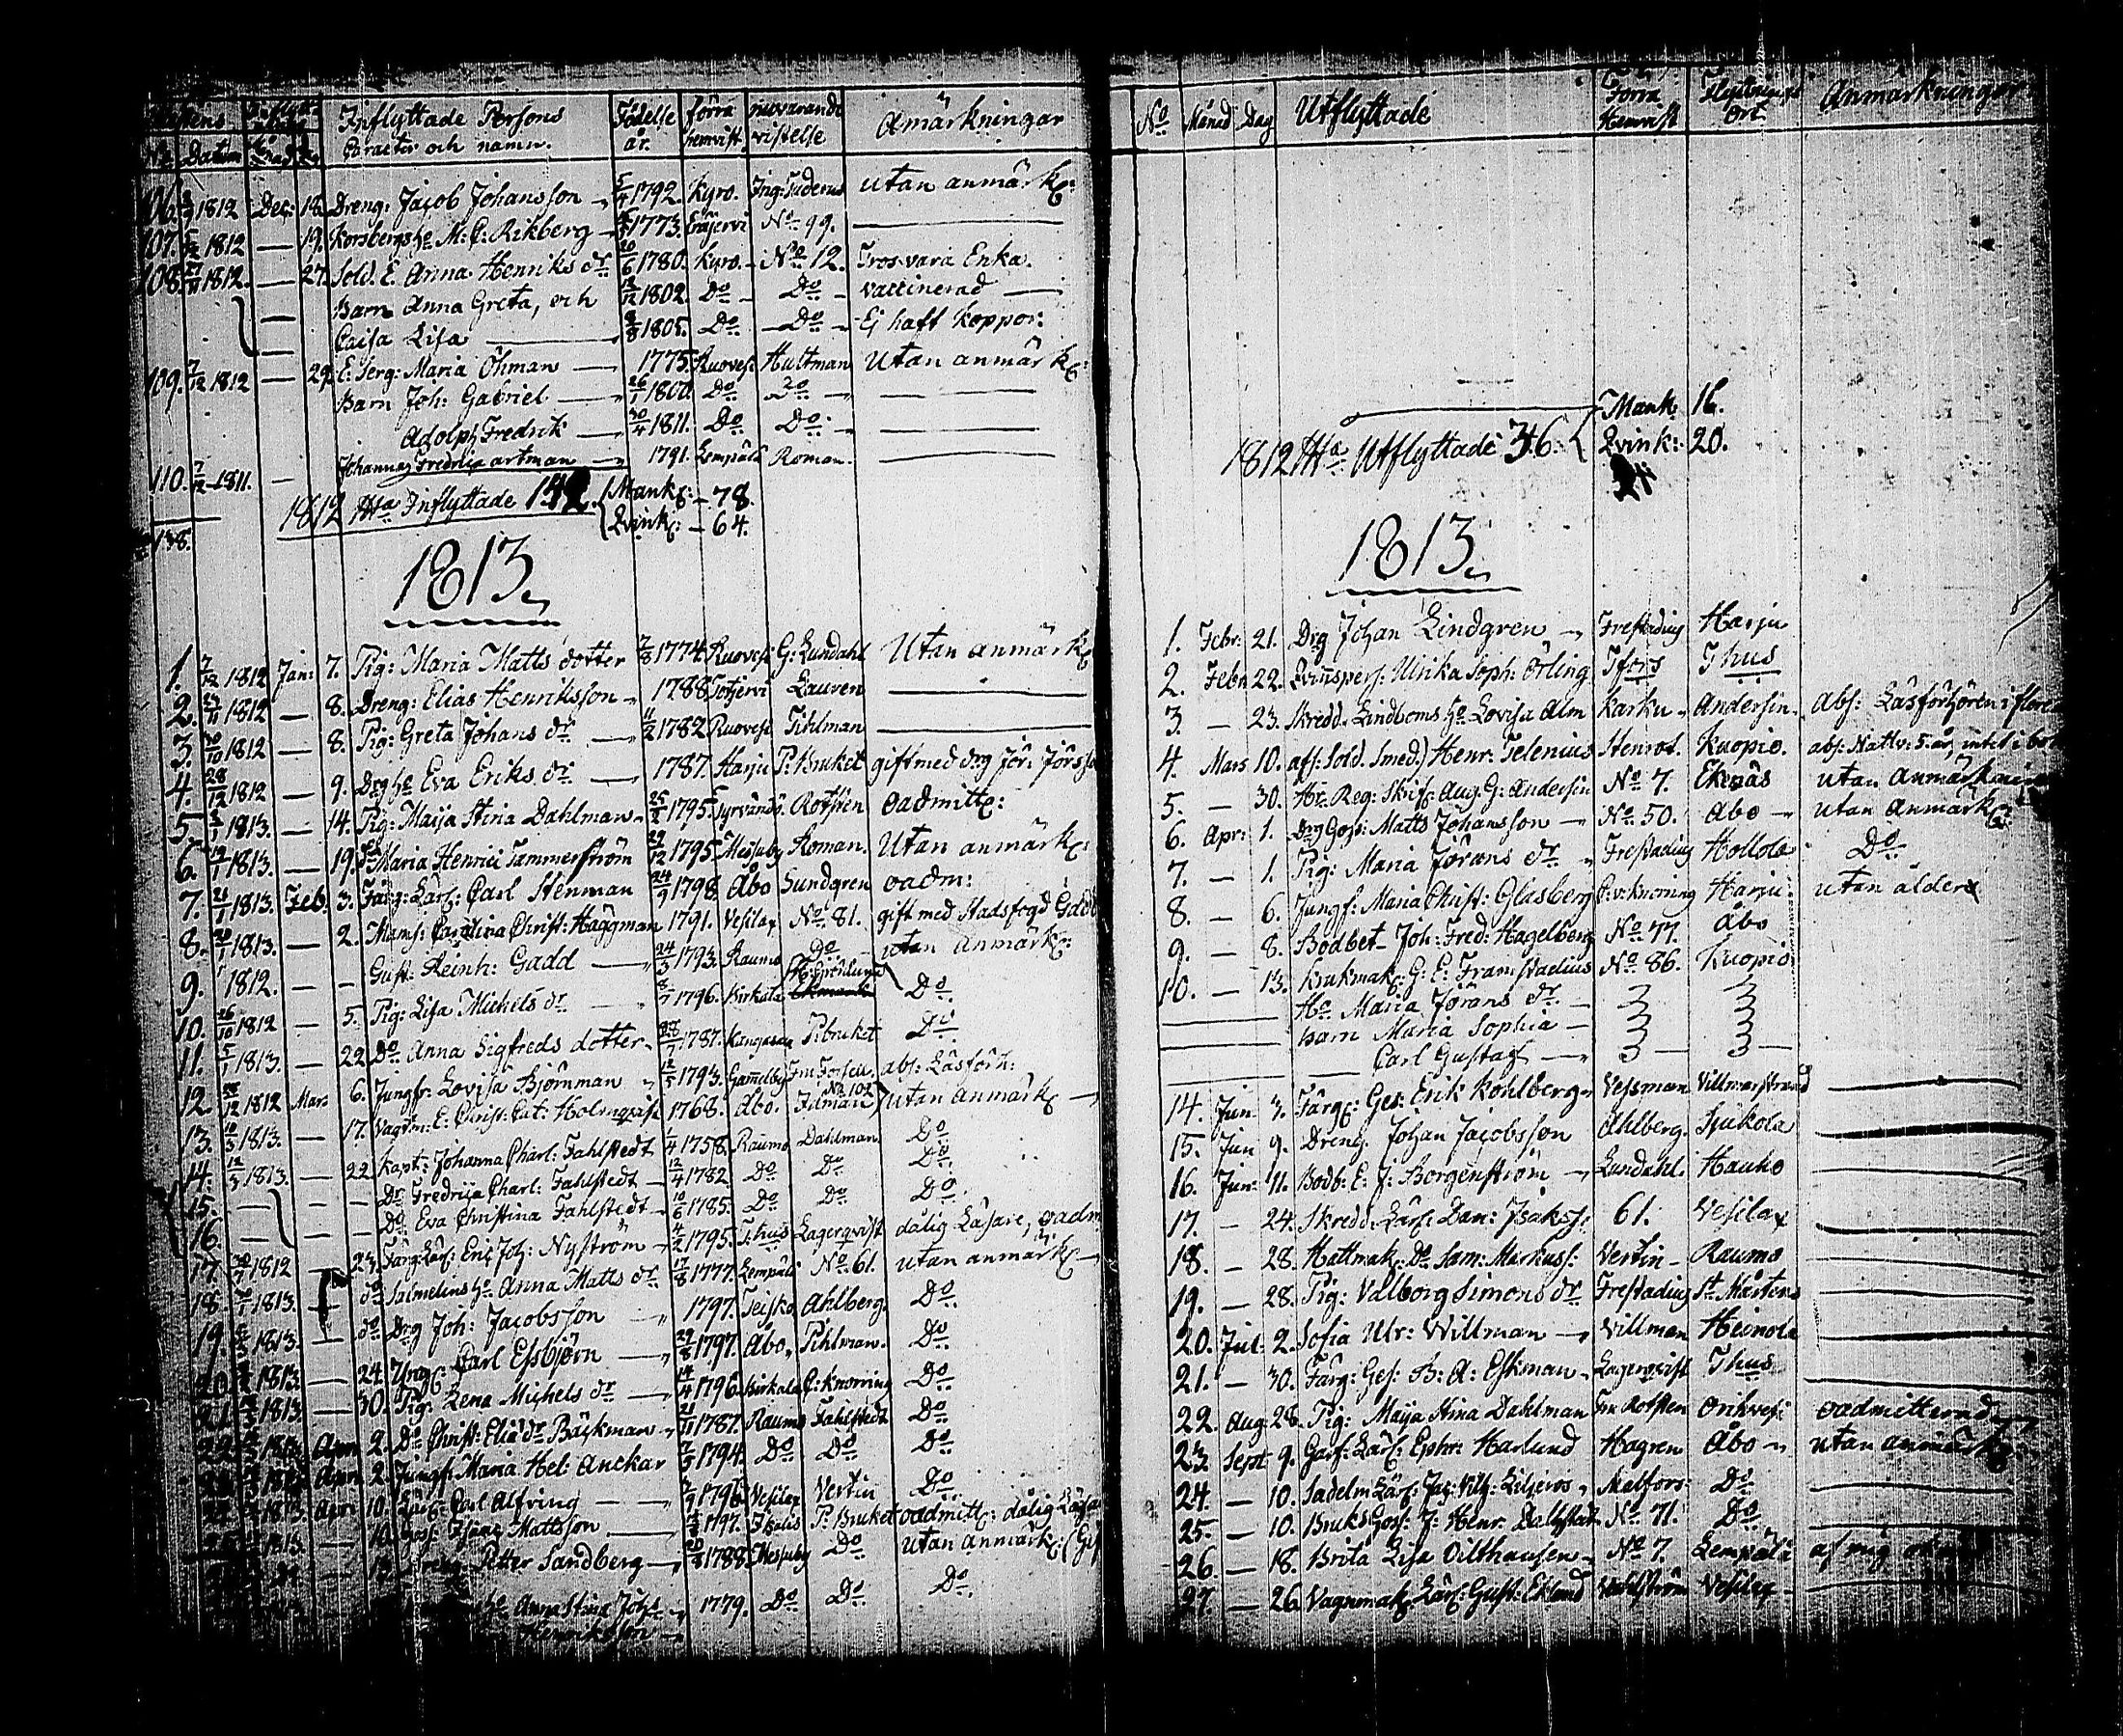 Inflyttade Persons Födelse förra nuvarande Amärkningar
No Datum Caracter och namn. år. hemvist. vistelse
106. 1812 Dec: 18. Dreng: Jacob Johansson 5/4 1792. Kyro. utan anmärk:
107. 1812 — 19. M: C: Rikberg 1773. No 99. —
108. 1812. — 27. Sold. E. Anna Henriks dr 20/6 1780. Kyro. No 12. Trosvara Enka.
— Barn Anna Greta, och 1802. Do Do vaccinerad —
— Caisa Lisa 1805. Do Do Ej haft koppor.
109. 7/12 1812 — 29. E: Serg: Maria Öhman — 1775. Ruovesi Hultman Utan anmärk:
Barn Joh: Gabriel — 26/1 1800. Do Do —
Adolph Fredrik — 30/4 1811. Do Do —
110. 7/12 1811. — 1791. Lempälä Roman. —
1812 Inflyttade 142. Mank: — 78.
Qvink: — 64.
138.
1813.
1. 7/12 1812 Jan: 7. Pig: Maria Matts dotter 1774. Ruovesi G: Lundahl Utan anmärk
2. 1812 — 8. Dreng: Elias Henriksson 1788. Lauren —
3. 30/10 1812 — 8. Pig: Greta Johans dr — 11/2 1782 Ruovesi Tihlman —
4. 28/12 1812 — 9. Drg ho Eva Eriks dr — 1787. Harju P: Bruket gift med drg
5. 1813. — 14. Pig: Maija Stina Dahlman 25/2 1795. Rotsten oadmitt:
6. 1813. — 19. Do Maria Henrici Tammerström 29/12 1795. Messuby Roman. Utan anmärk:
7. 21/1 1813. Feb. 3. Färg: Lärl: Carl Stenman 24/9 1798. Åbo Sundgren oadm:
8. 20/1 1813. — 2. Mams: Carolina Christ: Häggman 1791. Vesilax No 81. gift med Stadsfogd Gadd
9. 1812. — Gust: Reinh: Gadd — 24/3 1793. Raumo Do utan anmärk:
10. 26/10 1812 — 5. Pig: Lisa Michels dr 8/7 1796. Birkala Do
11. 5/1 1813. — 22. Do Anna Sigfreds dotter 1787. Kangasala P: bruket Do
12. 1812 Mars 6. Jungfr: Lovisa Björnman 1793. Gamelby abs: Läsförh:
13. 10/3 1813. — 17. Vagtm: E: Christ: Cat: Holmqvist 1768. Åbo. No 102 utan anmärk —
14. 12/3 1813. — 22. Kapt: Johanna Charl: Fahlstedt 1/4 1758. Raumo Dahlman Do
15. — Dr Fredrica Charl: Fahlstedt 12/4 1782 Do Do Do
16. — Do Eva Christina Fahlstedt 10/6 1785. Do Do Do
17. 1812 — 23. Färg: Lärl: Eric Joh: Nyström 4/2 1795. T:hus Lagerqvist dålig Läsare, oadm
18. 1813. — do Salmelins ho Anna Matts dr 17/8 1777. Lempälä No 61. utan anmärk —
19. 1813. — do Drg Joh: Jacobsson 1797. Teisko Ahlberg Do
20. 1813. — 24. Yngl: Carl Essbjörn — 29/8 1797. Åbo, Pihlman. Do
21. 1813. — 30. Pig: Lena Michels dr 14/4 1796. Birkala C: Knorring Do
22. 1813. Apr: 2. Do Christ: Elia dr Bäckman 21/11 1787. Raumo Fahlstedt Do
1813. Apr: 2. Jungf: Maria Hel: Anckar 1794. Do Do Do
1813. Apr: 10. Lärl: Carl Alfving — 1796. Vesilax Vertin Do
1813. — 10. Goss: Mattsson 1797. Ikalis P: Bruket oadmitt: dålig
— Dreng Petter Sandberg 20/8 1788. Messuby Do utan anmärk:
ho Anna Stina 1779. Do Do Do
Henriksson
No Månad Dag Utflyttade Förra Hemvist Flyttnings Ort Anmärkningar
1812 Utflyttade 36. Mank: 16.
Qvink: 20.
1813.
1. Febr: 21. Drg Johan Lindgren Frestadius Harju
2. Febr 22. Qvinspers: Ulrika Soph: Örling T:fors T:hus
3. — 23. Skredd. Lindboms ho Lovisa Alm Karku Andersin. Abs: Läsförhören i flere
4. Mars 10. afs: Sold. Smed) Henr: Telenius Kuopio. abs: Nattv: 5. år, intet i
5. — 30. Hr Reg: Skrifv: Aug: G: Andersin No 7. Ekenäs utan Anmärkning
6. Apr: 1. Drg Goss: Matts Johansson No 50. Åbo utan Anmärk:
7. — 1. Pig: Maria Jörans dr Frestadius Hollola Do
8. — 6. Jungf: Maria Christ: Glasberg C: v: Knorring Harju. utan ålder
9. — 8. Bodbet. Joh: Fred: Hagelberg No 77. Åbo
10. — 13. Krukmak: G: E: Framstadius No 86. Kuopio
Ho Maria Jörans dr
barn Maria Sophia
Carl Gustaf
14. Jun: 3. Färg: Ges: Erik Kohlberg Vessman Villmanstrand —
15. Jun 9. Dreng. Johan Jacobsson Ahlberg. Sjukola —
16. Jun: 11. Bodb: E: J: Borgenström Lundahl. Hauho —
17. — 24. Skredd. Lärl: Dan: Isaks: 61. Vesilax —
18. — 28. Hattmak: Do Sam: Markus: Vertin Raumo —
19. — 28. Pig: Valborg Simons dr Frestadius St Mårtens —
20. Jul: 2. Sofia Ulr: Willman Villman Heinola —
21. — 30. Färg: Ges: B: A: Eskman Lagerqvist T:hus —
22. Aug: 28. Pig: Maija Stina Dahlman Fru Rotsten Orihvesi oadmitterad
23. Sept 9. Garf: Lärl: Ephr: Harlund Hagren Åbo utan anmärk:
24. — 10. Sadelm: Lärl: Jac: Vilh: Liljeros Do —
25. — 10. Bruks Goss: J: Henr. Dahlstedt No 71. Do —
26. — 18. Brita Lisa Oilthausen No 7. Lempälä
27. — 26. Vagnmak: Lärl: Gust: Eklund Vahlström Vesilax —